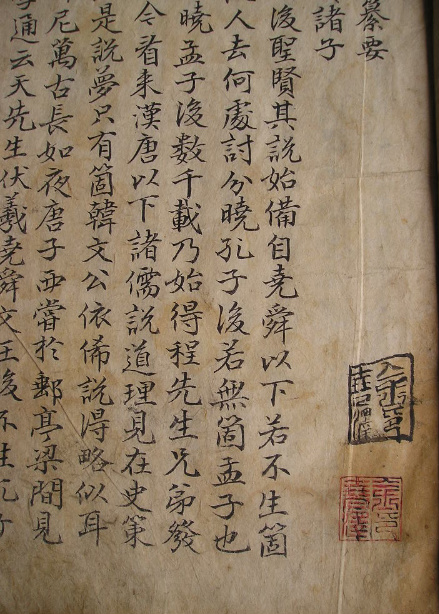 纂要
諸子
後聖賢其說始備自堯舜以下若不生箇
人去何處討分曉孔子後若無箇孟子也
曉孟子後数千載乃始得程先生兄弟發
今看来漢唐以下諸儒說道理見在史策
是說夢只有箇韓文公依俙說得略似耳
尼萬古長如夜唐子西嘗於郵亭梁間見
通云天先生伏羲堯舜文王後不生孔子